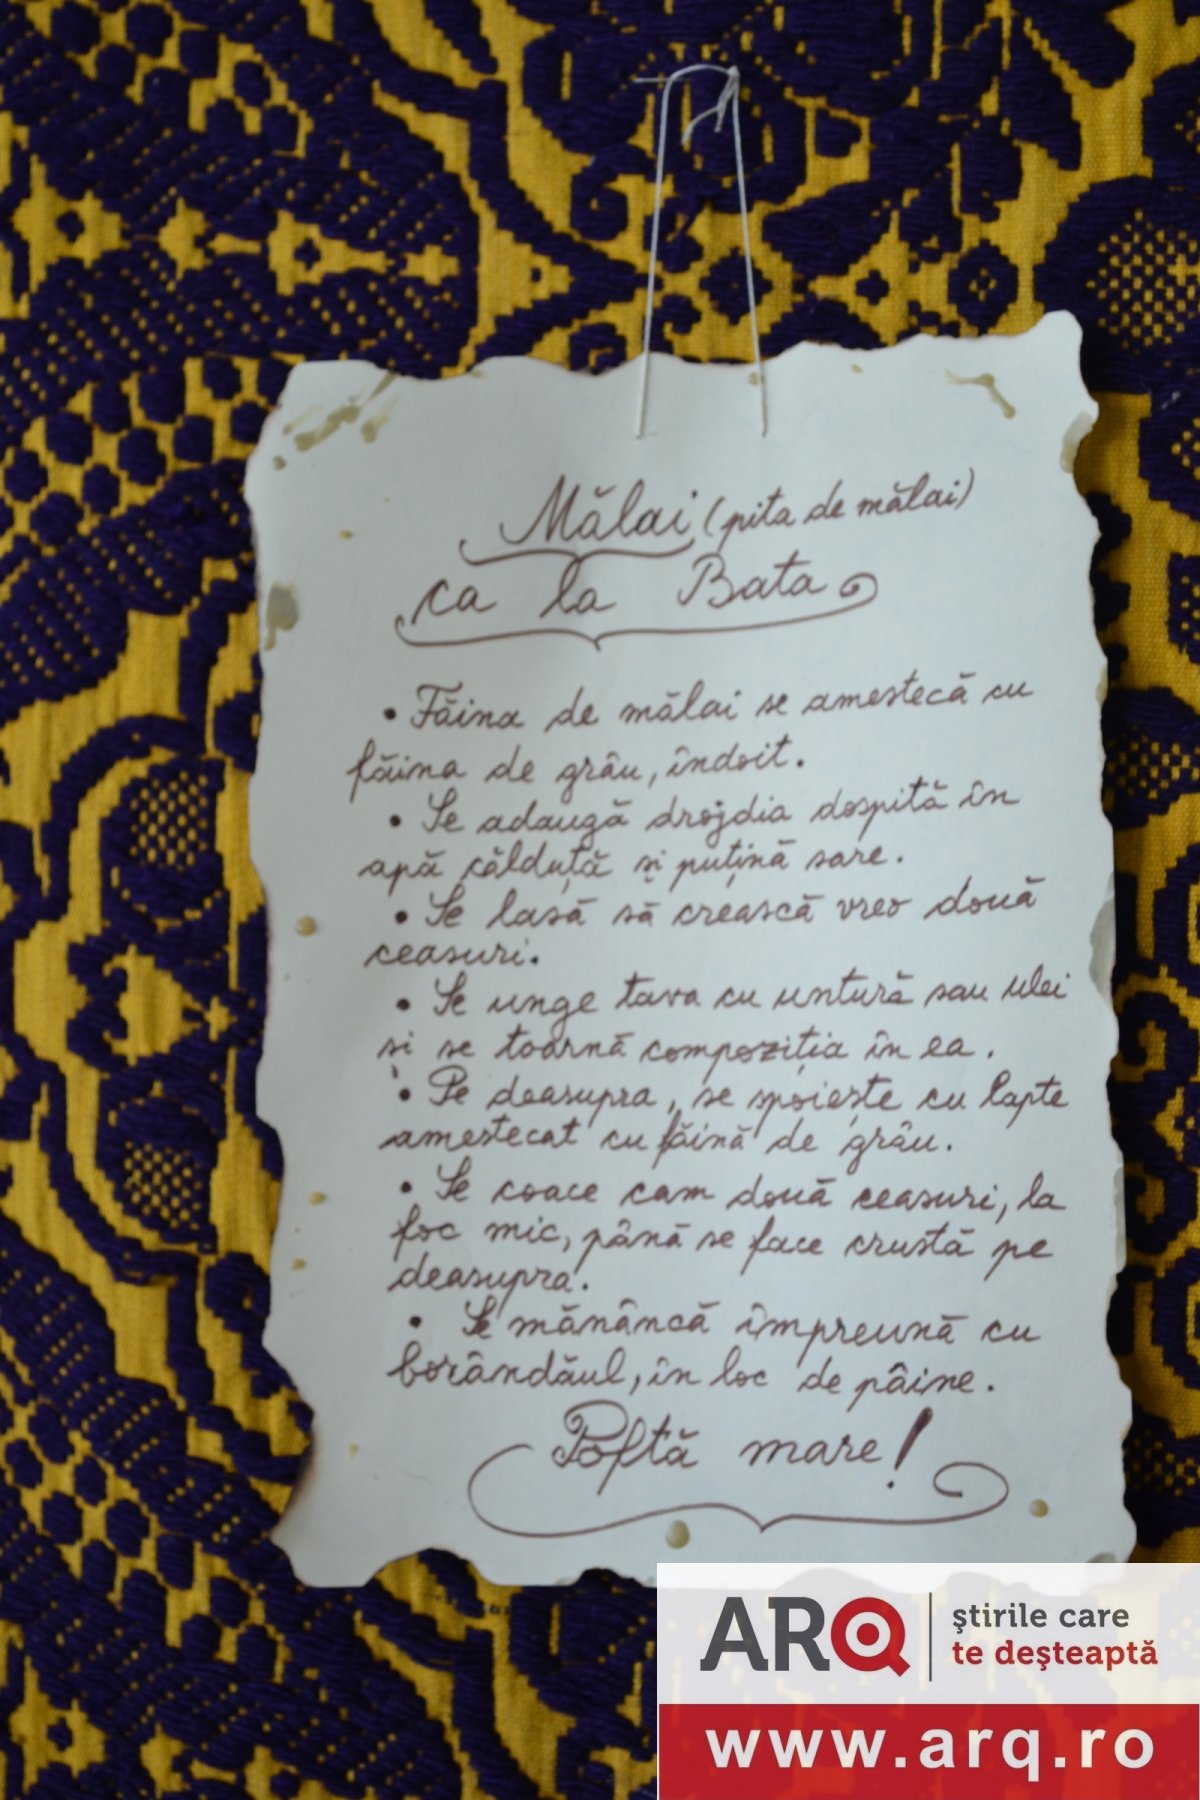 Mălai (pita de mălai)
ca la Bata
• Făina de mălai se amestecă cu
făina de grâu, îndoit.
• Se adaugă drojdia dospită în
apă călduță și puțină sare.
• Se lasă să crească vreo două
ceasuri.
• Se unge tava cu untură sau ulei
și se toarnă compoziția în ea.
• Pe deasupra, se spoiește cu lapte
amestecat cu făină de grâu.
• Se coace cam două ceasuri, la
foc mic, până se face crustă pe
deasupra.
• Se mănâncă împreună cu
borândăul, în loc de pâine.
Poftă mare!
ARQ
ştirile care
te deşteaptă
www.arq.ro